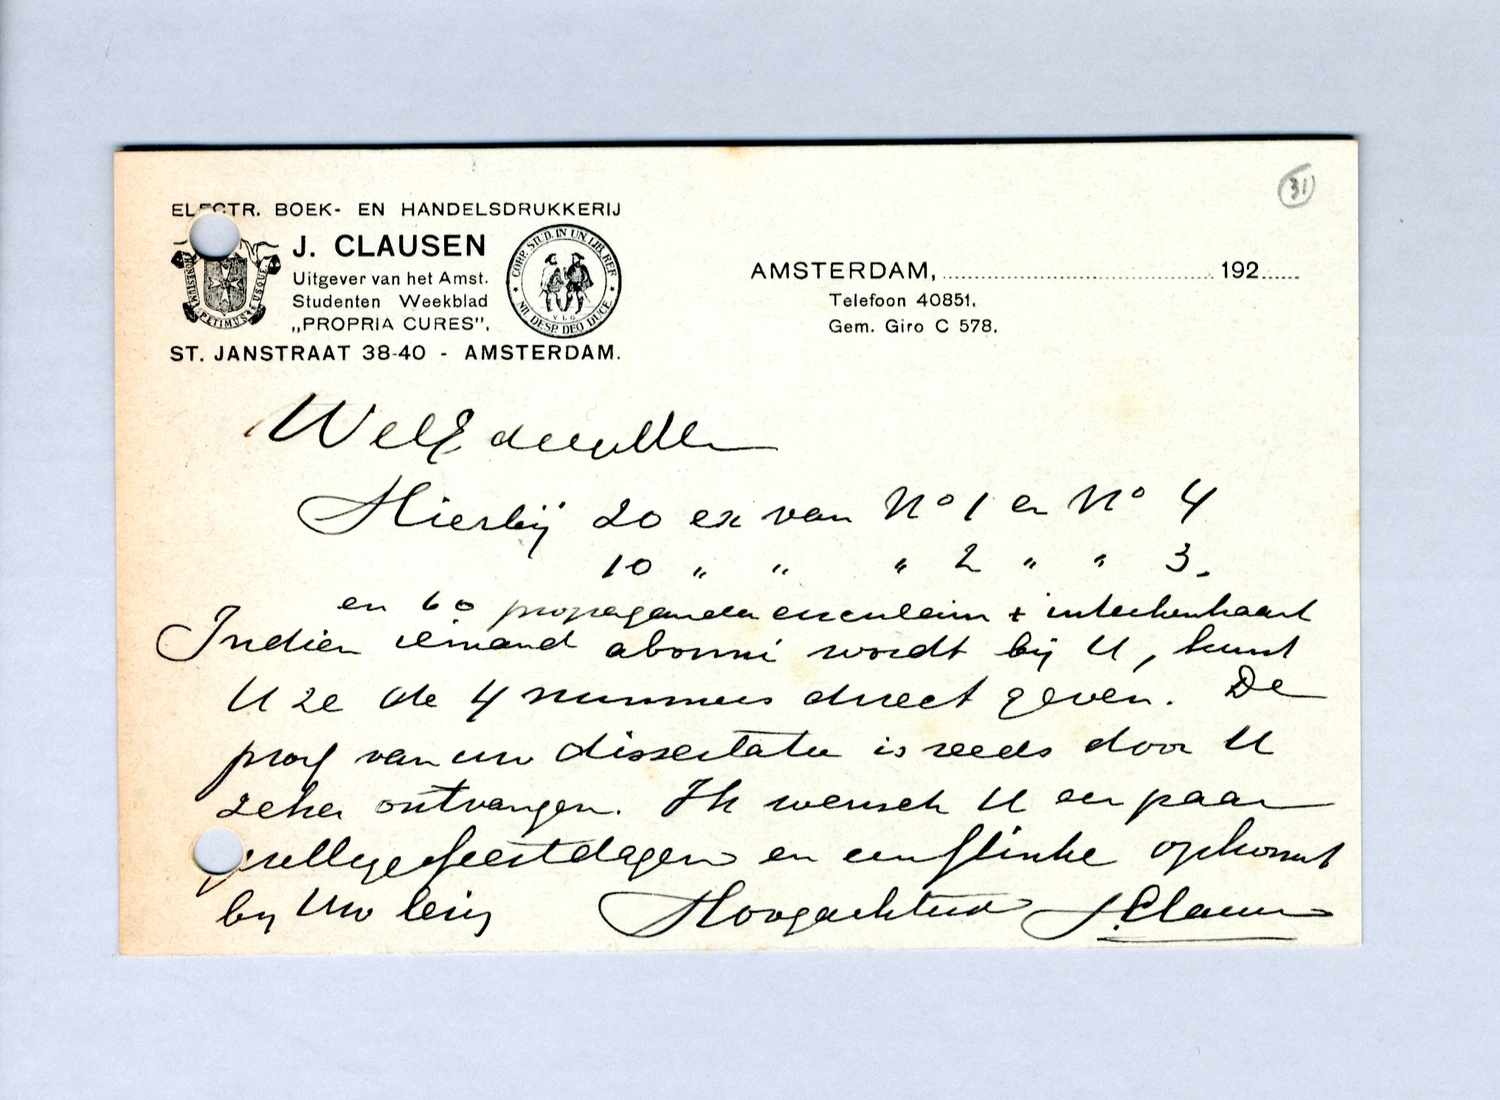 31
ELECTR. BOEK- EN HANDELSDRUKKERIJ
J. CLAUSEN
Uitgever van het Amst.
Studenten Weekblad
„PROPRIA CURES”.
ST. JANSTRAAT 38-40 - AMSTERDAM.
HONESTUM PETIMUS USQUE
CORP. STUD. IN UN. LIB. REF.
NIL DESP. DEO DUCE
V.L.G.
AMSTERDAM, 192
Telefoon 40851.
Gem. Giro C 578.
WelEd
Hierbij 20 ex van No 1 en No 4
10 „ „ „ 2 „ „ 3.
en 60 propaganda circulaires + intekenkaart
Indien iemand abonné wordt bij U, kunt
U ze de 4 nummers direct geven. De
proef van uw dissertatie is reeds door U
zeker ontvangen. Ik wensch U een paar
gezellige feestdagen en een flinke opkomst
bij Uw lezing Hoogachtend J. Clausen